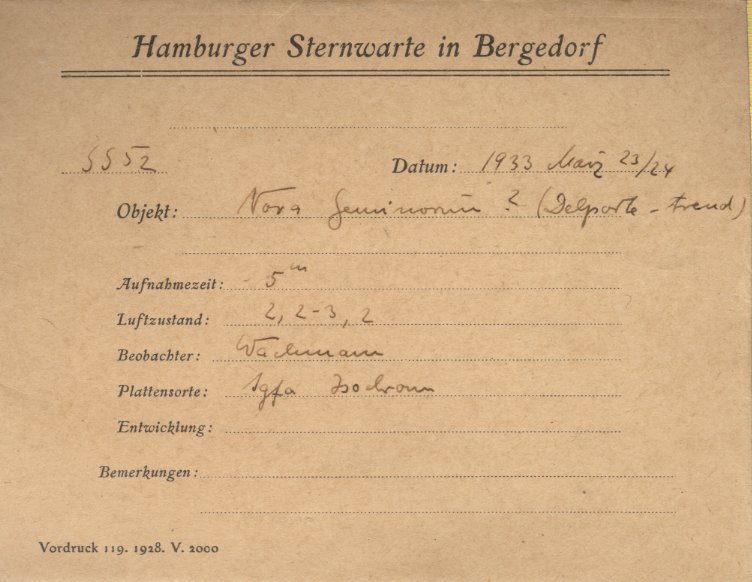 Hamburger Sternwarte in Bergedorf
5552 Datum: 1933 März 23/24
Objekt: Nova Geminorum ? (Delporte - Arend)
Aufnahmezeit: 5 m
Luftzustand: 2, 2-3, 2
Beobachter: Wachmann
Plattensorte: Agfa Isochrom
Entwicklung:
Bemerkungen:
Vordruck 119. 1928. V. 2000